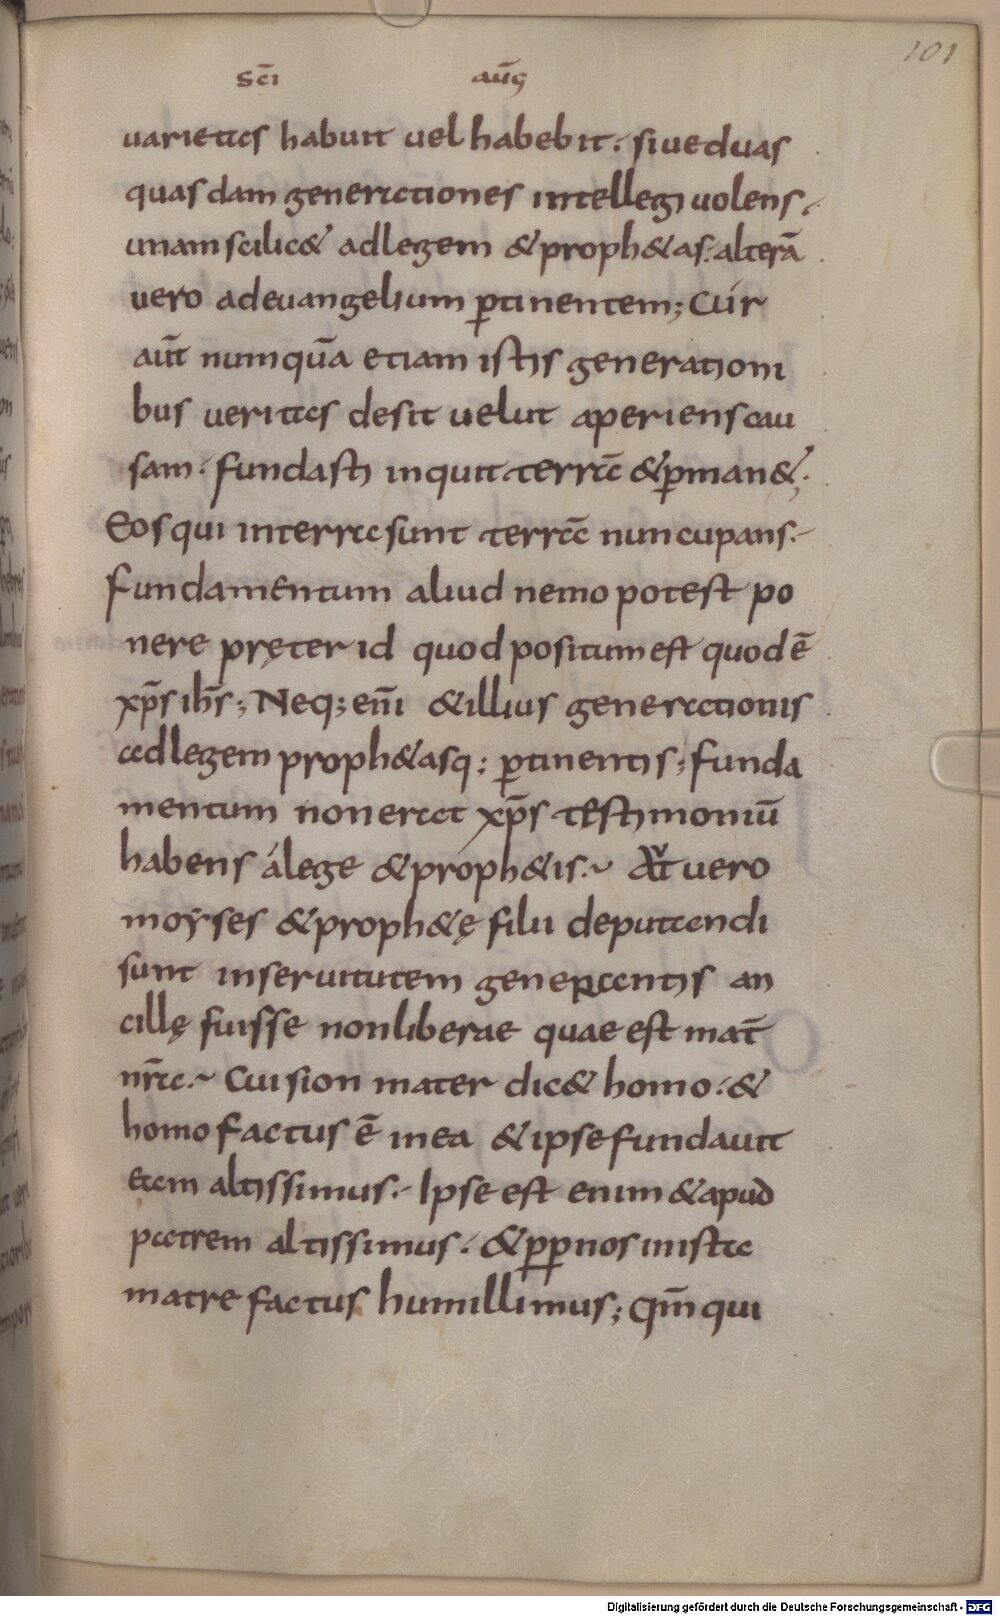 101
sc̄i aūg
uarietas habuit uel habebit· siue duas
quasdam generationes intellegi uolens·
unam scilic& ad legem & proph&as· alterā
uero ad euangelium ꝑtinentem; Cúr
aut̄ numquā etiam istis generationi
bus ueritas desit uelut aperiens cau
sam· fundasti inquit terrā & ꝑman&;
Eos qui in terra sunt terrā nuncupans·
Fundamentum aliud nemo potest po
nere pręter id quod positum est quod ē
xp̄s ih̄s; Neq; eni̅ & illius generationis
ad legem proph&asq; ꝑtinentis; funda
mentum non erat xp̄s testimoniū
habens á lege & proph&is·~ Aut uero
moyses & proph&ę filii deputandi
sunt in seruitutem generantis an
cillę fuisse non liberae quae est mat̄
nr̄a·~ Cui sion mater dic& homo· &
homo factus ē in ea & ipse fundauit
eam altissimus· Ipse est enim & apud
patrem altissimus· & ꝓꝑ nos in ista
matre factus humillimus; Qm̄ qui
Digitalisierung gefördert durch die Deutsche Forschungsgemeinschaft - DFG